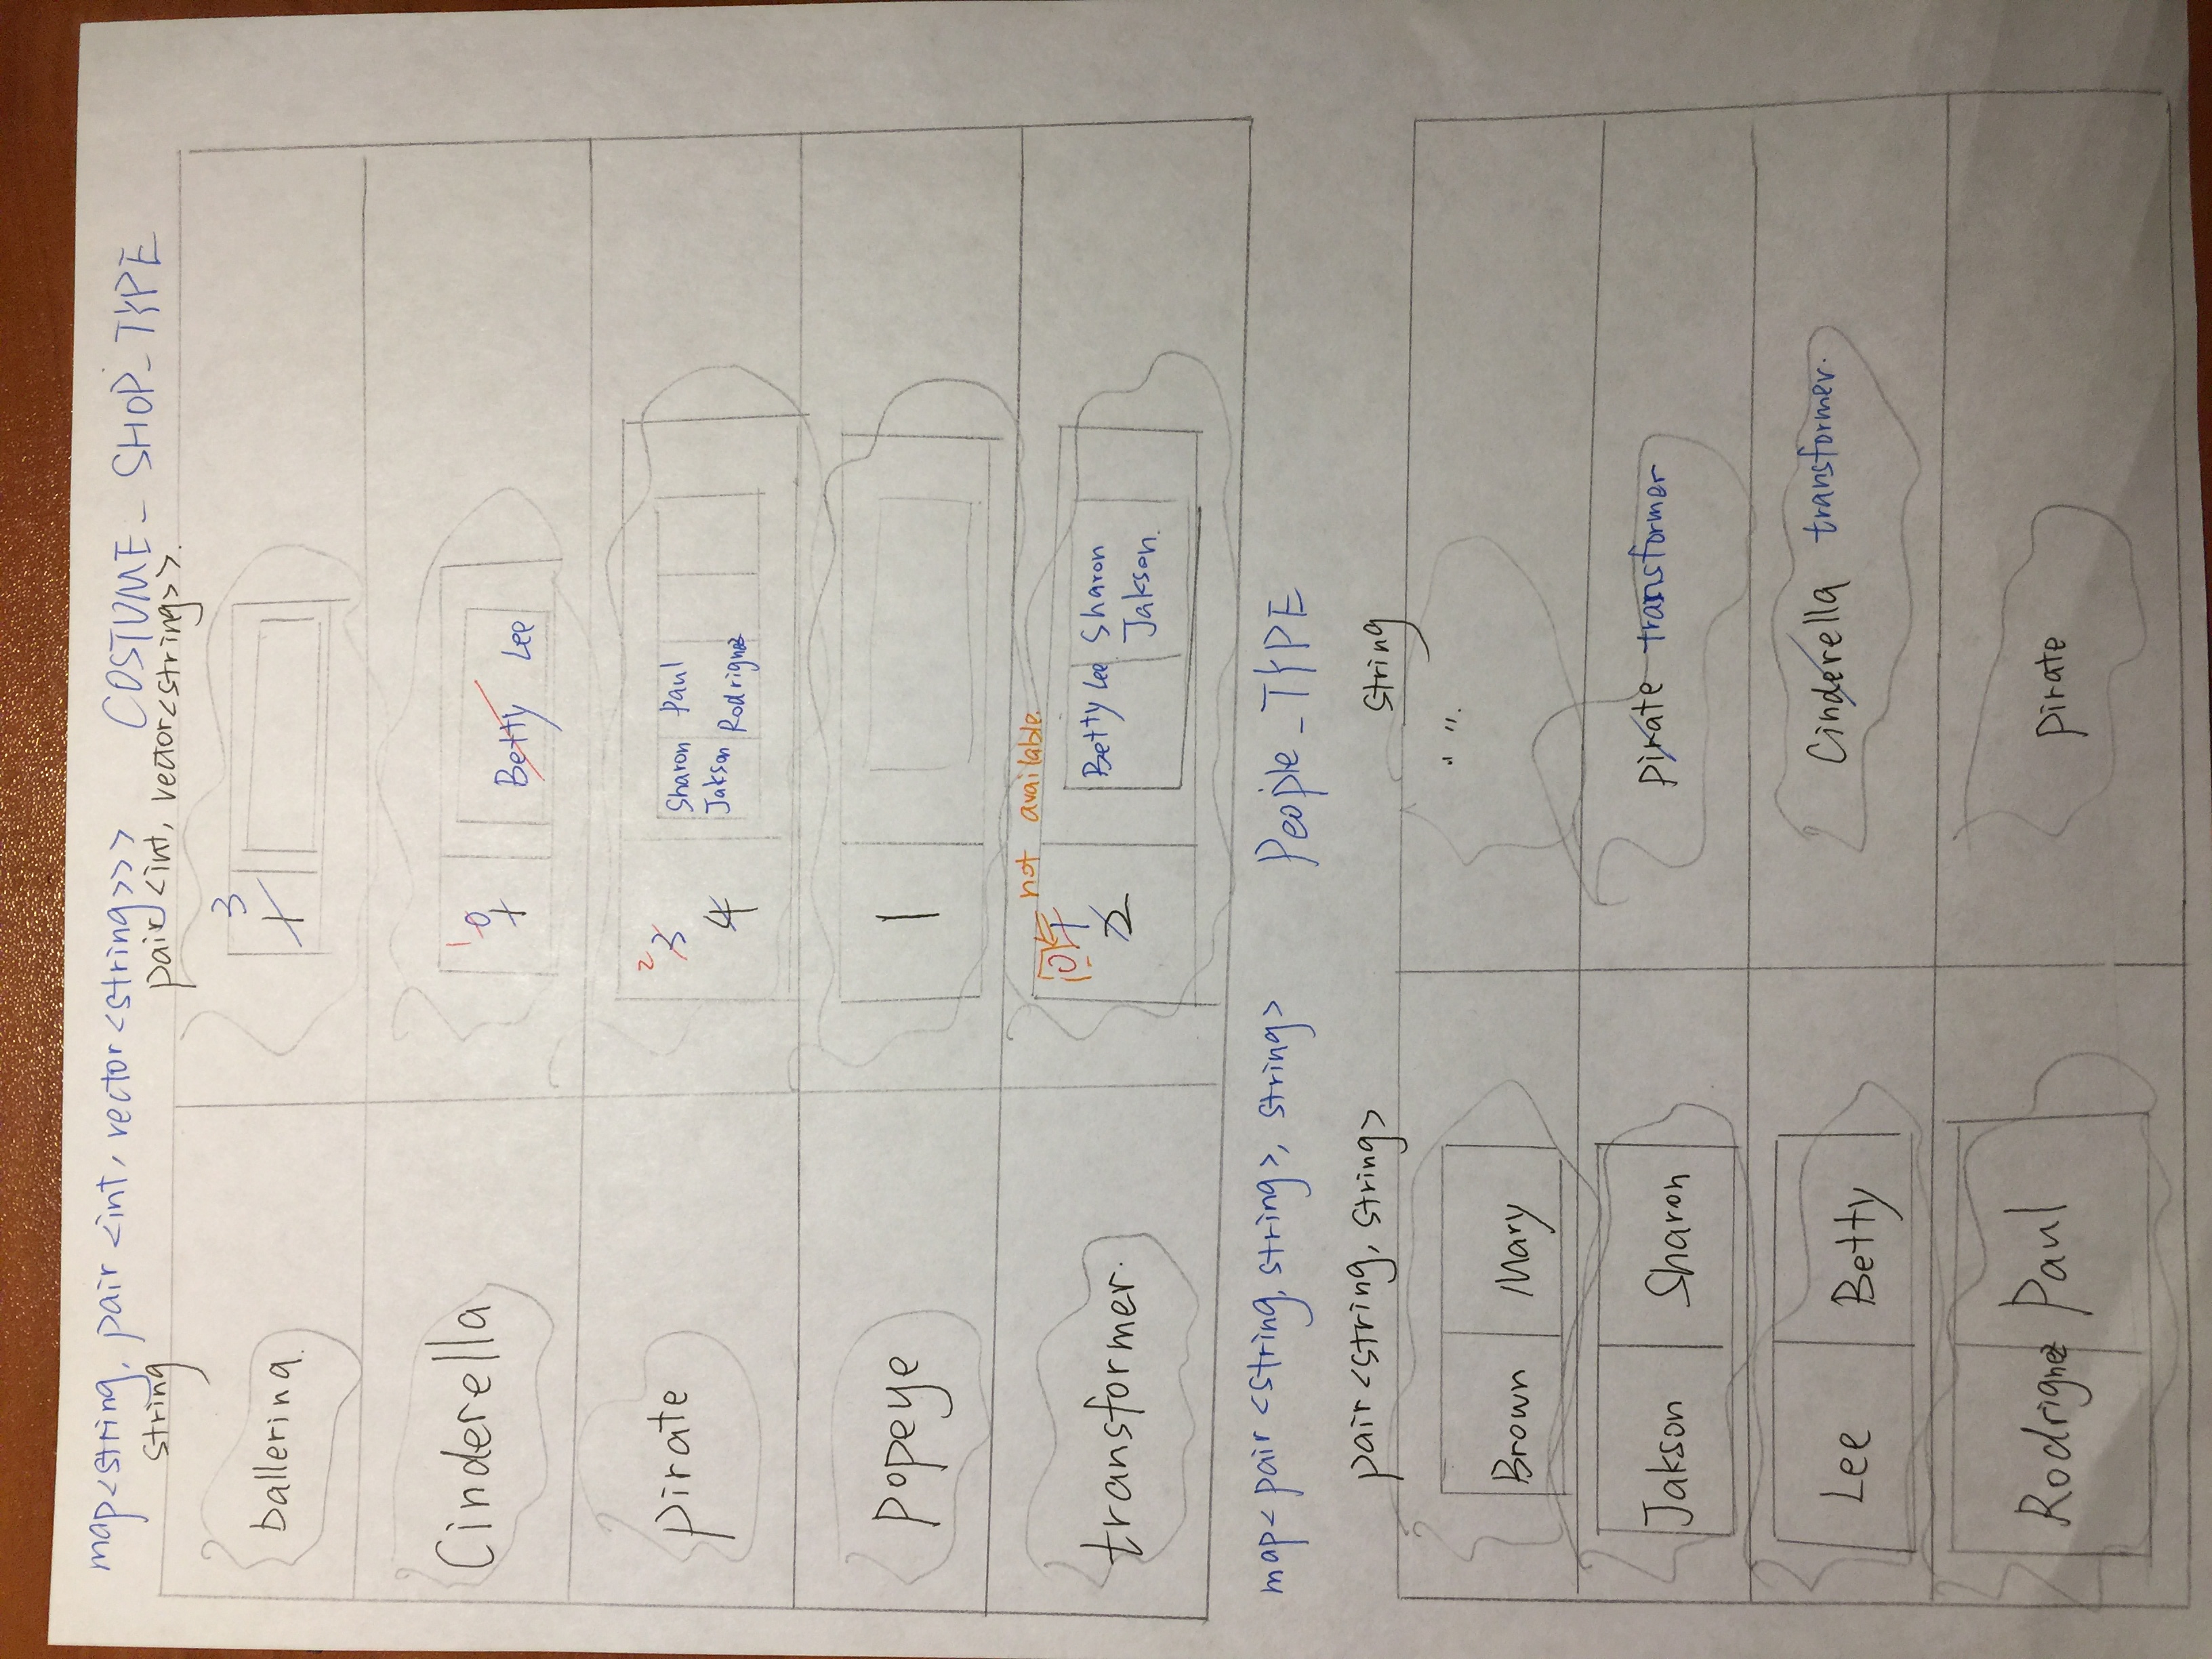 map<string, pair <int, vector<string>>>   COSTUME_SHOP_TYPE
string   pair <int, vector<string>>.
ballerina.   3
1
Cinderella   1 0
1   Betty Lee
pirate   2 3   Sharon Paul
4   Jakson Rodriguez
popeye   1
not available.
0 1   Betty Lee   Sharon
transformer.   2   Jakson.
map< pair <string, string>, string>   People_TYPE
pair <string, string>   string
" ".
Brown   Mary
Jakson   Sharon   pirate transformer
Lee   Betty   Cinderella transformer.
Rodriguez   Paul   pirate